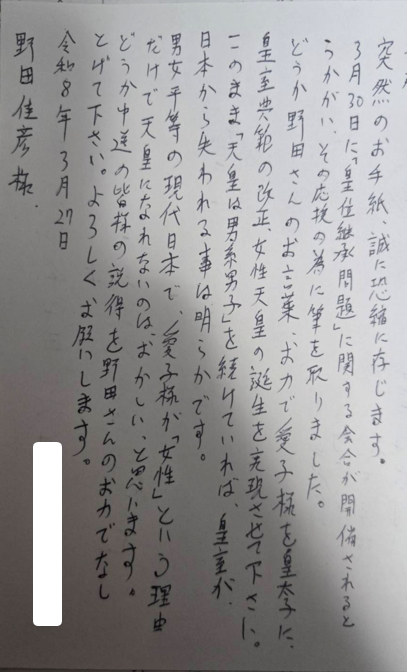 突然のお手紙、誠に恐縮に存じます。
3月30日に「皇位継承問題」に関する会合が開催されると
うかがい、その応援の為に筆を取りました。
どうか野田さんのお言葉、お力で愛子様を皇太子に、
皇室典範の改正、女性天皇の誕生を実現させて下さい。
このまま「天皇は男系男子」を続けていれば、皇室が、
日本から失われる事は明らかです。
男女平等の現代日本で、愛子様が「女性」という理由
だけで天皇になれないのは、おかしい、と思います。
どうか中道の皆様の説得を野田さんのお力でなし
とげて下さい。よろしくお願いします。
令和8年3月27日
野田佳彦様.